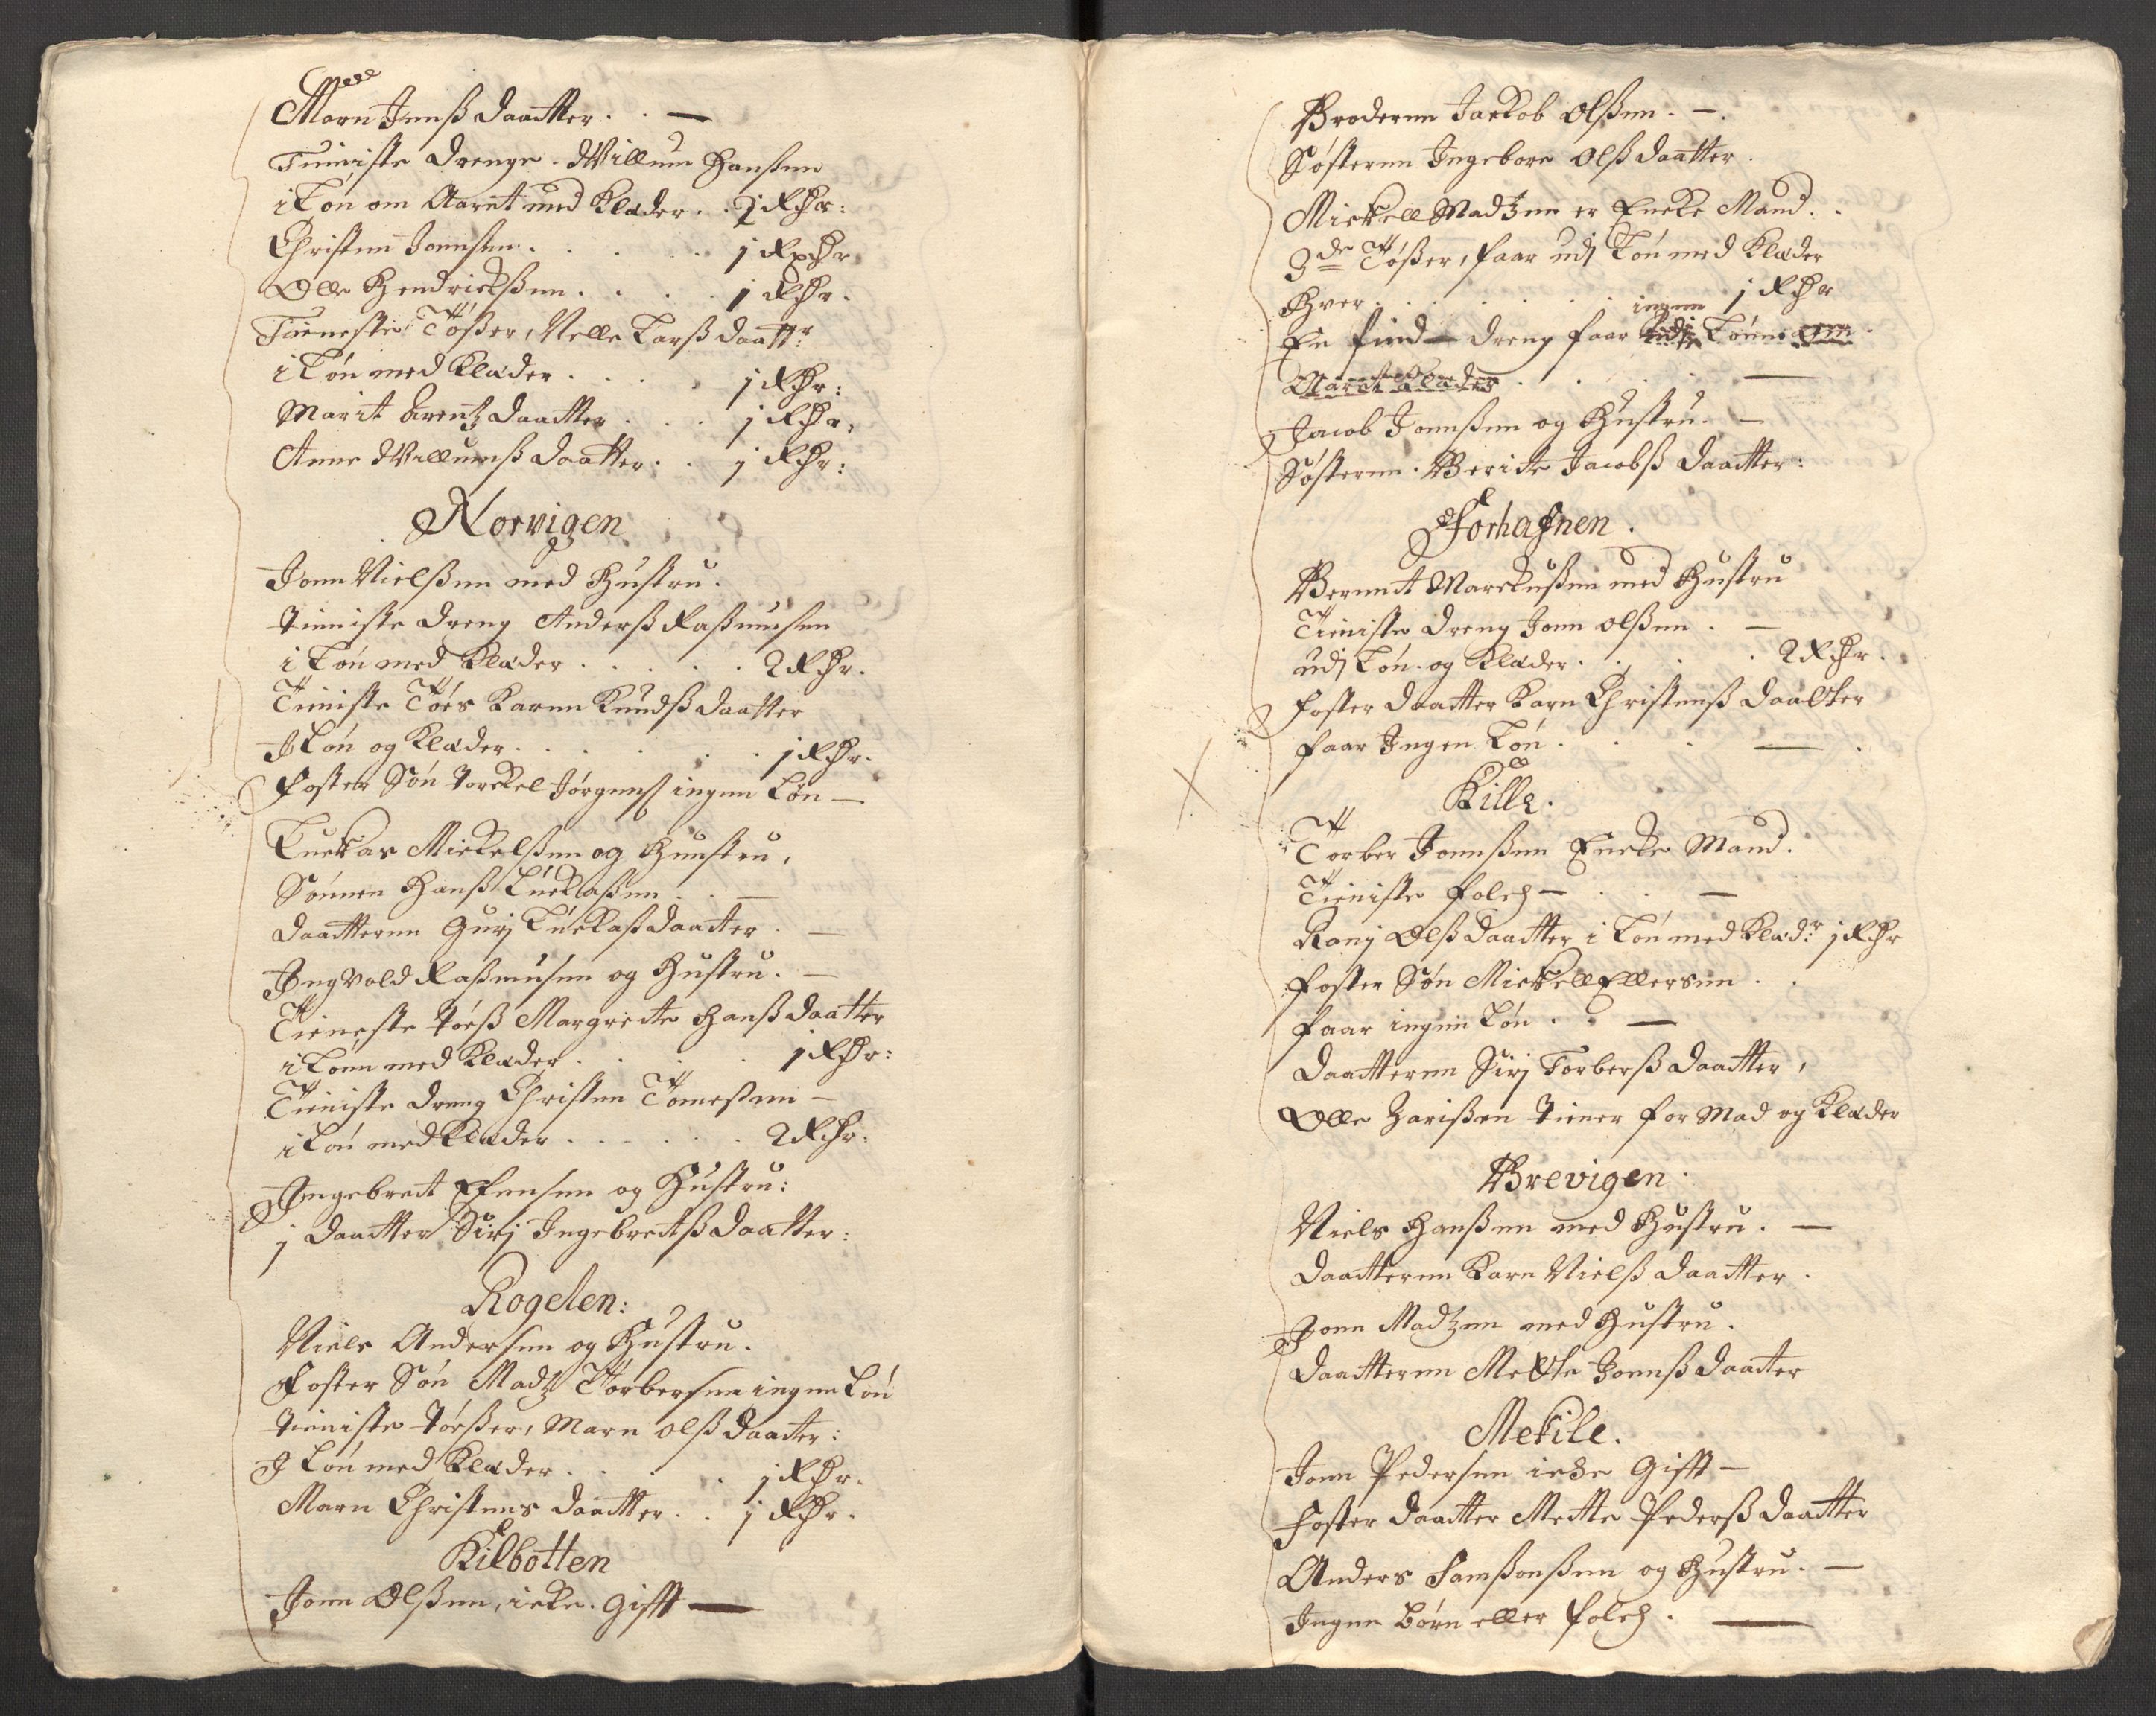 Marn Jenß daatter . . —
Tieniste drenge . Willum Hanßen
i Løn om Aaret med Klæder . . 2 Rdr:
Christen Joensen . . . . . 1 Rdr
Olle Hendrickßen . . . . 1 Rdr.
Tieneste Tøßer, Nelle Larß daattr:
i Løn med Klæder . . . . 1 Rdr:
Marit Arentz daatter . . . 1 Rdr.
Anne Willumß daatter . . 1 Rdr:
Norvigen
Jonn Nielßen med Hustru.
tieniste dreng Anderß Raßmusen
i Løn med Klæder . . . . . 2 Rdr.
Tieniste Tøes Karen Knudß daatter
J Løn og Klæder . . . . . . 1 Rdr.
Foster Søn Torckel Jørgens ingen Løn —
Luckas Mickelßen og Hunstru,
Sønnen Hanß Luckaßen . . —
daatteren Gurj Luckaß daatter . —
Jngvold Raßmusen og Hustru . —
Tieneste tøeß Margrete Hanß daatter
i Lønn med Klæder . . . . 1 Rdr:
Tieniste dreng Christen Tomeßen —
i Løn med Klæder . . . . . . 2 Rdr:
Jngebret Efensen og Hustru:
1 daatter Sirj Jngebretß daatter:
Rogelen:
Niels Andersen og Hustru.
Foster Søn Madtz Torbersen ingen Løn
tieniste tøeßer, Marn Olß daatter:
J Løn med Klæder . . . . 1 Rdr.
Marn Christens daatter . . 1 Rdr.
Kilbotten
Jonn Olßen, icke. Gifft —
Broderen Jackob Olßen . — .
Søsteren Jngebore Olß daatter .
Mickell Madtzen er Encke Mand . .
3de Tøßer, faar udj Løn med Klæder
Hver . . . . . . . 1 Rdr
ingen
En find— dreng faar udj Lønn om
Aaret Klæder . . . . —
Jacob Jonnßen og Hustru . —
Søsteren . Berite Jacobß daatter:
Forhafnen .
Berent Marckußen med Hustru
Tieniste dreng Jonn Olßen . —
udj Løn . og Klæder . . . . 2 Rdr.
foster daatter Karn Christenß daatter
faar Jngen Løn . . . — .
Kille.
Torber Jonnßen Encke Mand.
Tieniste folch — . . —
Ranj Olß daatter i Løn med Klædr 1 Rdr
foster Søn Mickell Ellersen . .
faar ingen Løn . . —
daatteren Sirj Torberß daatter,
Olle Zarißen tiener for Mad og Klæder
Brevigen .
Niels Hanßen med Hustru . —
daatteren Karn Nielß daatter .
Jonn Madtzen med Hustru .
daatteren Mette Jonnß daatter
Mekile.
Jonn Pedersen icke Gifft —
foster daatter Mette Pederß daatter
Anders Samßonßen og Hustru . —
Jngen børn eller folch . —